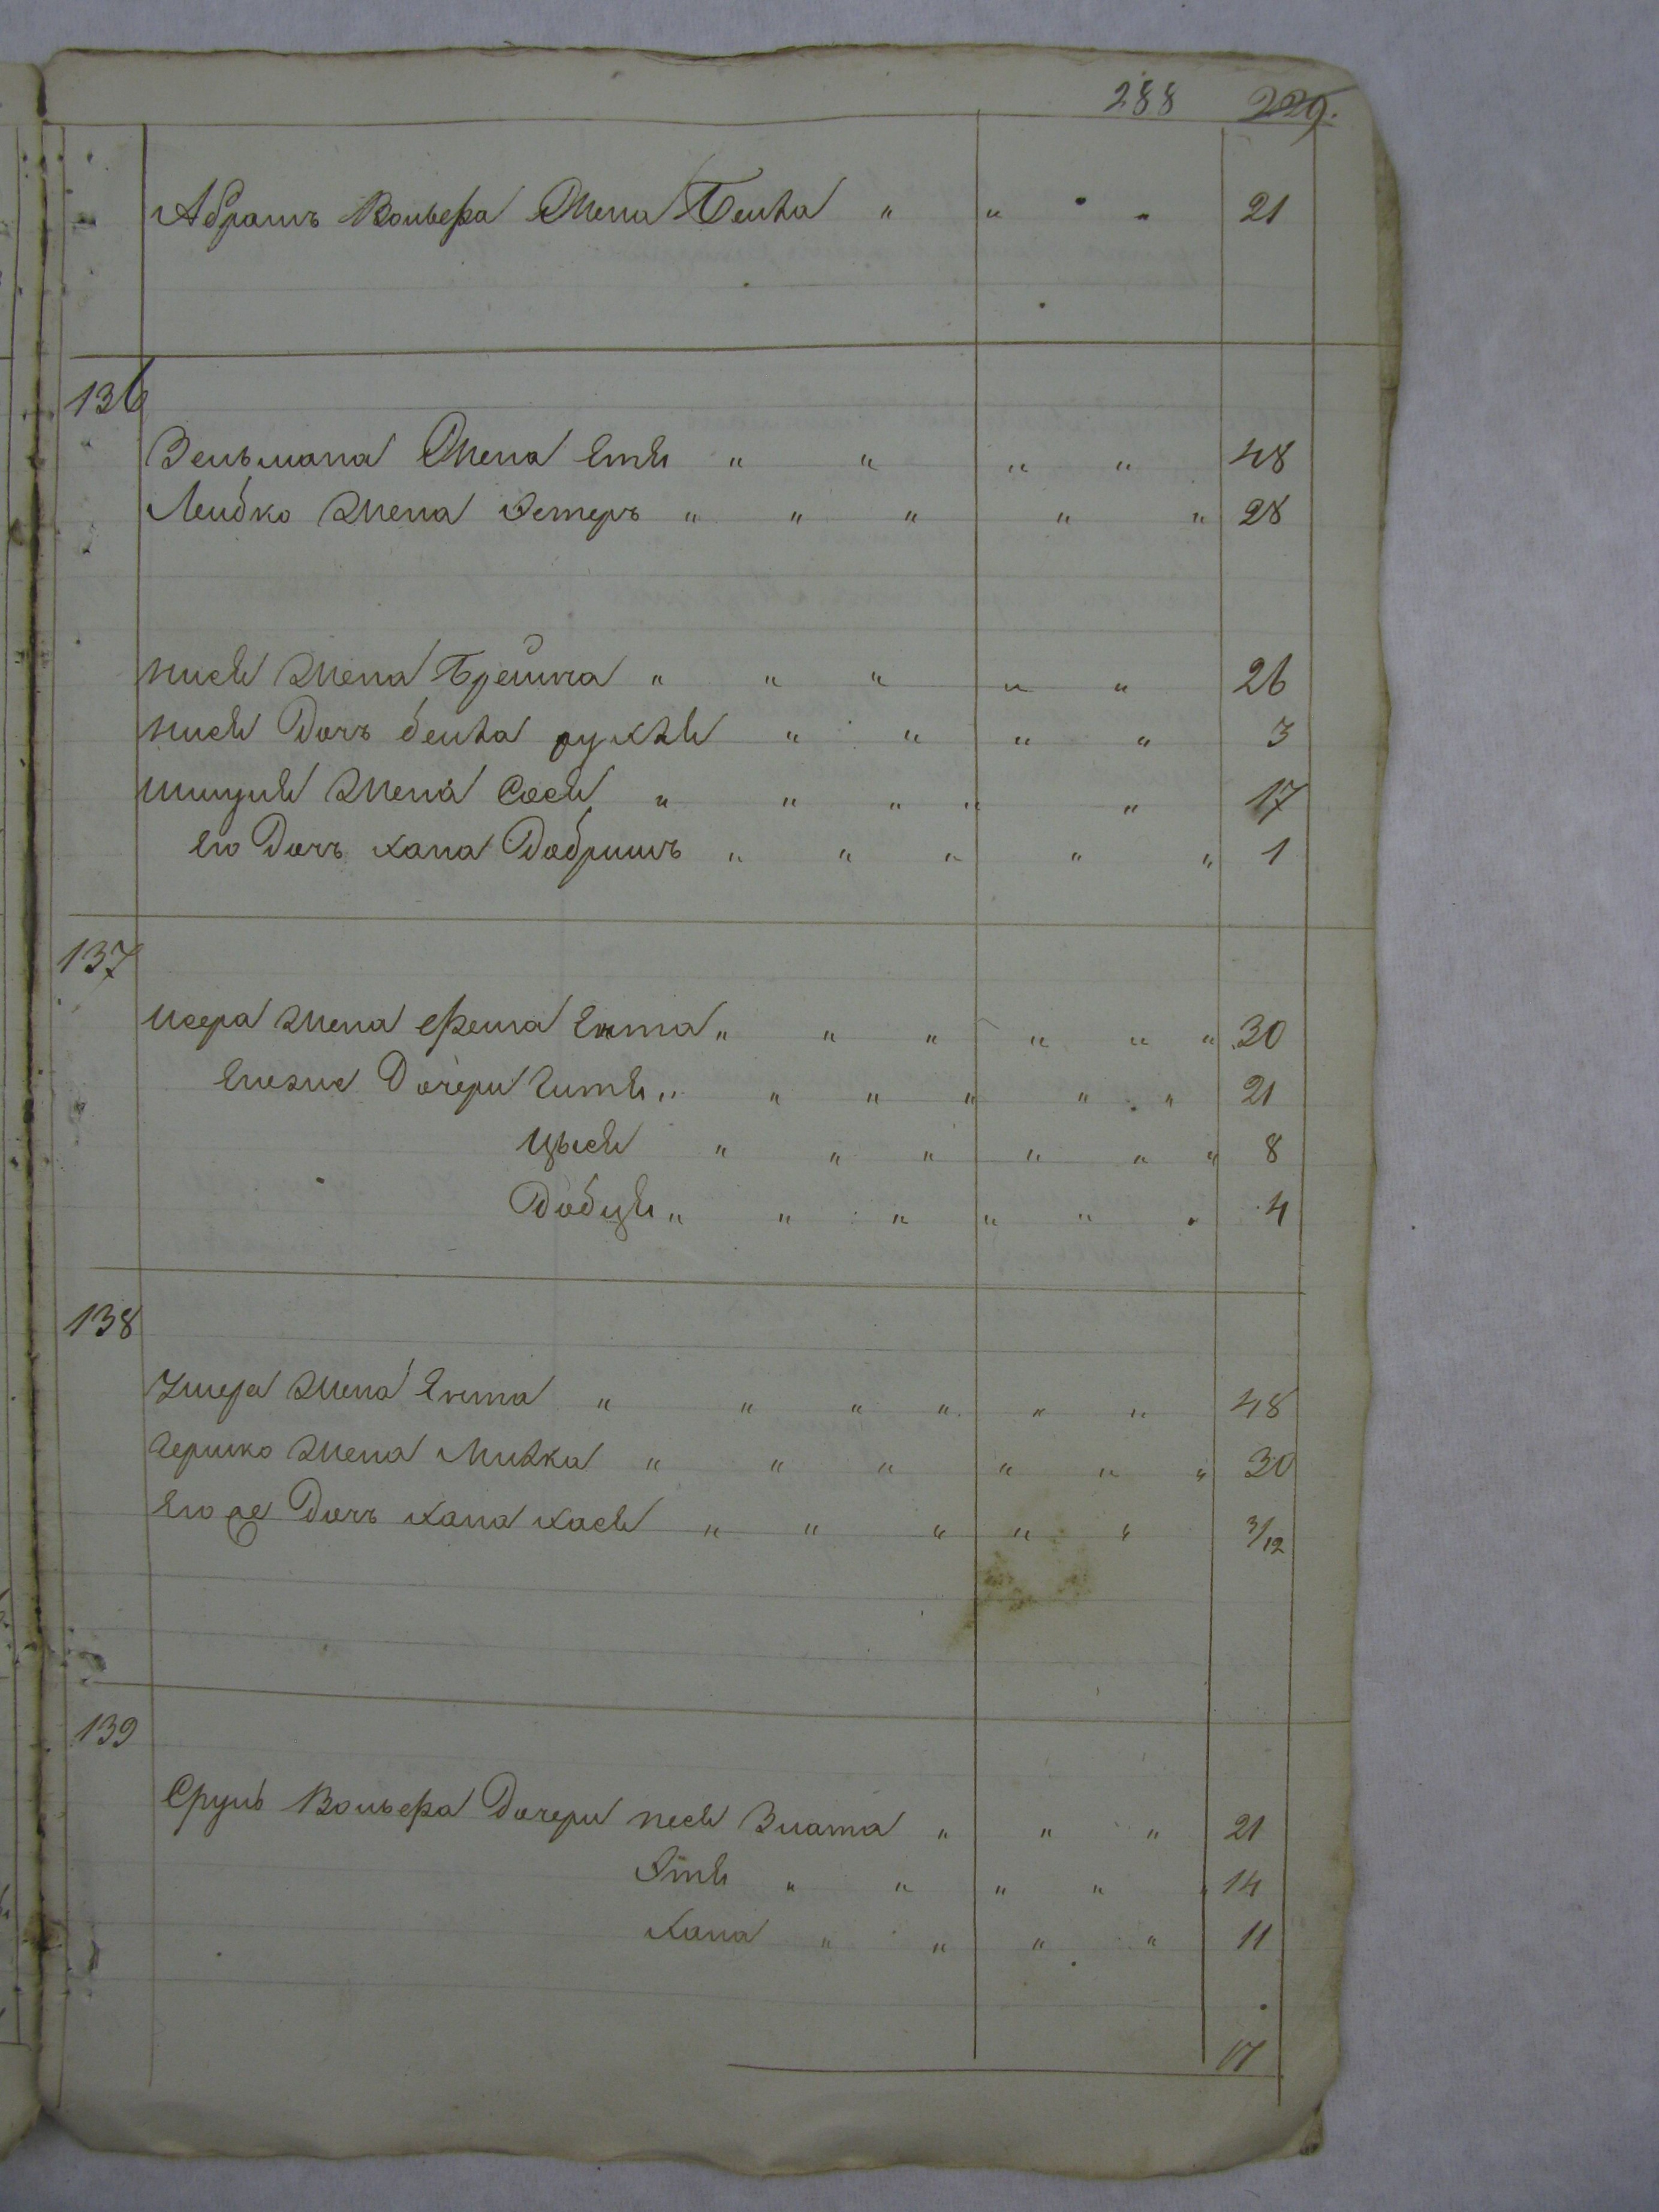 288 229.
Абрамъ Вольфа Жена Бейла " " " " 21
136
Зельмана Жена Етя " " " " 48
Лейбко Жена Эстеръ " " " " " 28
Нися Жена Брейна " " " " " 26
Нися Дочь бейла рухля " " " " 3
Шмуля Жена Сося " " " " " 17
Его Дочь хана Добришъ " " " " " 1
137
Исера Жена фейга Ента " " " " " " 30
Его же Дочери Гитя " " " " " " 21
Цыся " " " " " " 8
Добця " " " " " " 4
138
Умера Жена Ента " " " " " " 48
Гершко Жена Милка " " " " " " 30
Его же Дочь хана хася " " " " " 3/12
139
Сруль Вольфа Дочери песя Злата " " " 21
Этя " " " " " 14
Хана " " " " " 11
17